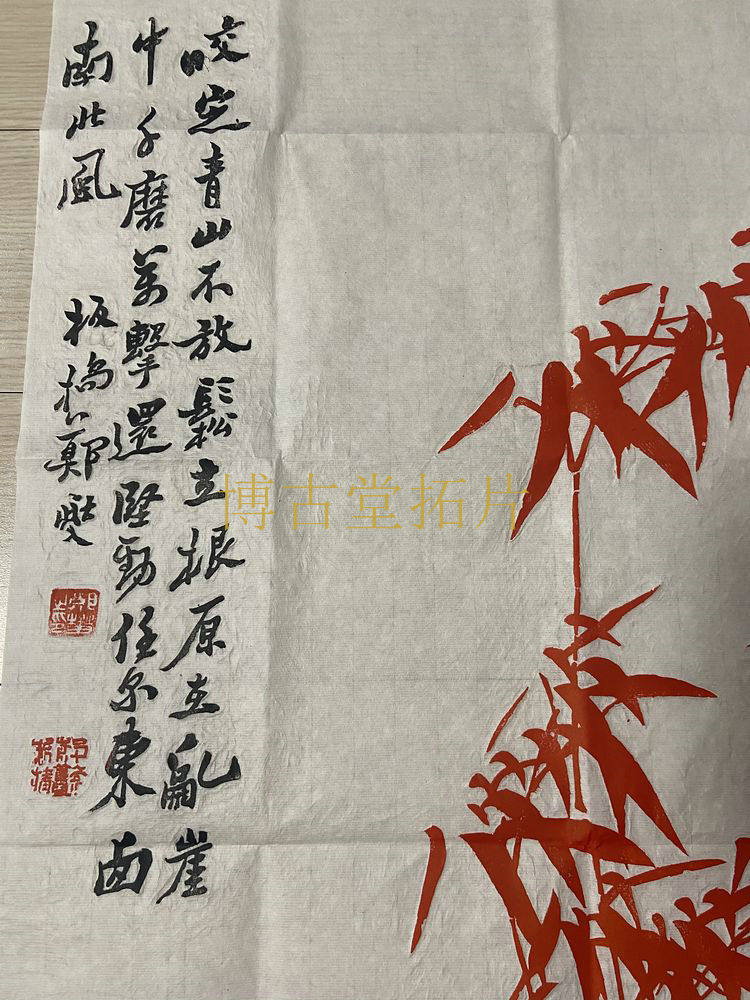 咬定青山不放鬆立根原立亂崖
中千磨萬擊還堅勁任尔東西
南北風
板橋鄭燮
博古堂拓片